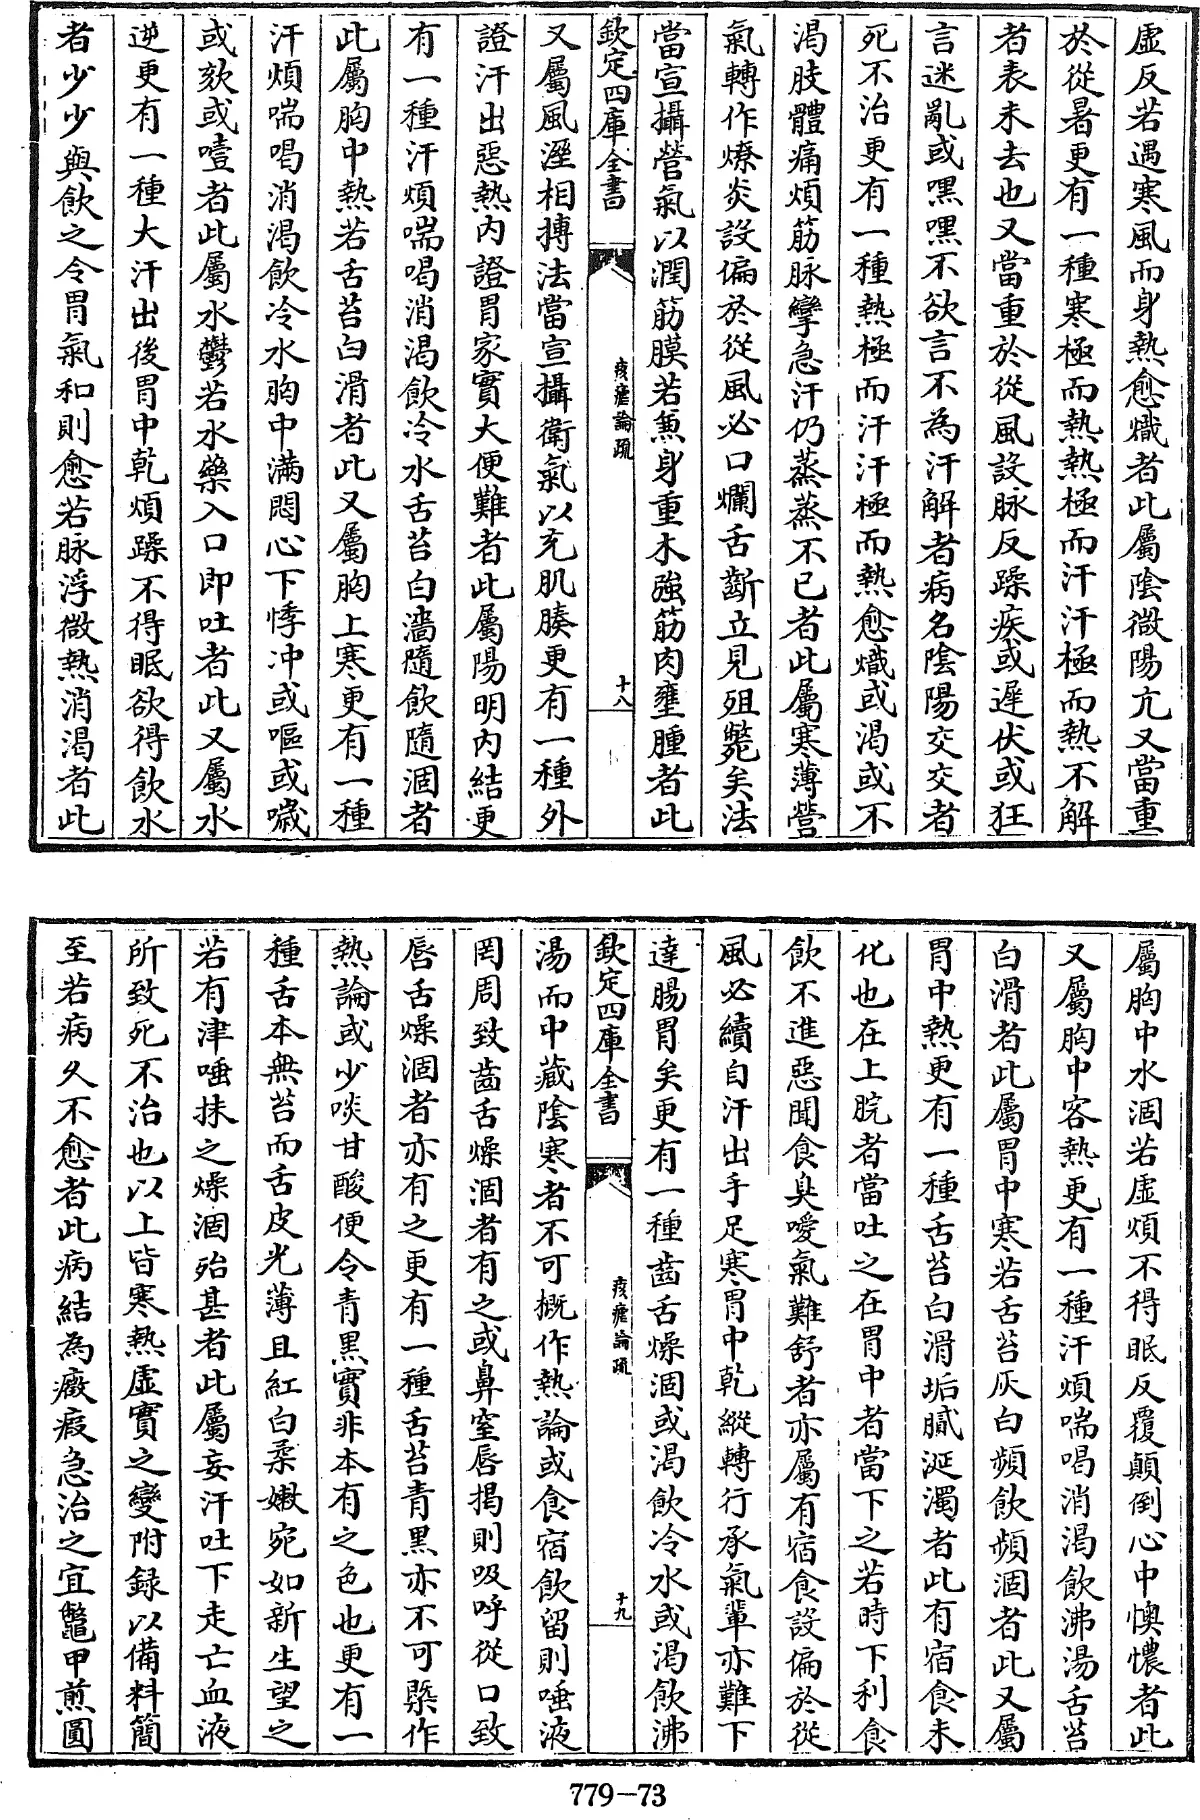 虛反若遇寒風而身熱愈熾者此屬陰微陽亢又當重
於從暑更有一種寒極而熱熱極而汗汗極而熱不解
者表未去也又當重於從風設脉反躁疾或遲伏或狂
言迷亂或嘿嘿不欲言不為汗解者病名陰陽交交者
死不治更有一種熱極而汗汗極而熱愈熾或渴或不
渴肢體痛煩筋脉攣急汗仍蒸蒸不已者此屬寒薄營
氣轉作燎炎設偏於從風必口爛舌斷立見殂斃矣法
當宣攝營氣以潤筋膜若兼身重木強筋肉壅腫者此
欽定四庫全書
痎瘧論疏
十八
又屬風溼相摶法當宣攝衛氣以充肌腠更有一種外
證汗出惡熱內證胃家實大便難者此屬陽明內結更
有一種汗煩喘喝消渴飲冷水舌苔白濇隨飲隨涸者
此屬胸中熱若舌苔白滑者此又屬胸上寒更有一種
汗煩喘喝消渴飲冷水胸中滿悶心下悸冲或嘔或噦
或欬或噎者此屬水鬱若水藥入口即吐者此又屬水
逆更有一種大汗出後胃中乾煩躁不得眠欲得飲水
者少少與飲之令胃氣和則愈若脉浮微熱消渴者此
屬胸中水涸若虛煩不得眠反覆顛倒心中懊憹者此
又屬胸中客熱更有一種汗煩喘喝消渴飲沸湯舌苔
白滑者此屬胃中寒若舌苔灰白頻飲頻涸者此又屬
胃中熱更有一種舌苔白滑垢膩涎濁者此有宿食未
化也在上脘者當吐之在胃中者當下之若時下利食
飲不進惡聞食臭噯氣難舒者亦屬有宿食設偏於從
風必續自汗出手足寒胃中乾縱轉行承氣輩亦難下
達腸胃矣更有一種齒舌燥涸或渴飲冷水或渴飲沸
欽定四庫全書
痎瘧論疏
十九
湯而中藏陰寒者不可概作熱論或食宿飲留則唾液
罔周致齒舌燥涸者有之或鼻窒唇揭則吸呼從口致
唇舌燥涸者亦有之更有一種舌苔青黑亦不可槩作
熱論或少啖甘酸便令青黑實非本有之色也更有一
種舌本無苔而舌皮光薄且紅白柔嫩宛如新生望之
若有津唾抹之燥涸殆甚者此屬妄汗吐下走亡血液
所致死不治也以上皆寒熱虛實之變附録以備料簡
至若病久不愈者此病結為癥瘕急治之宜鼈甲煎圓
779-73